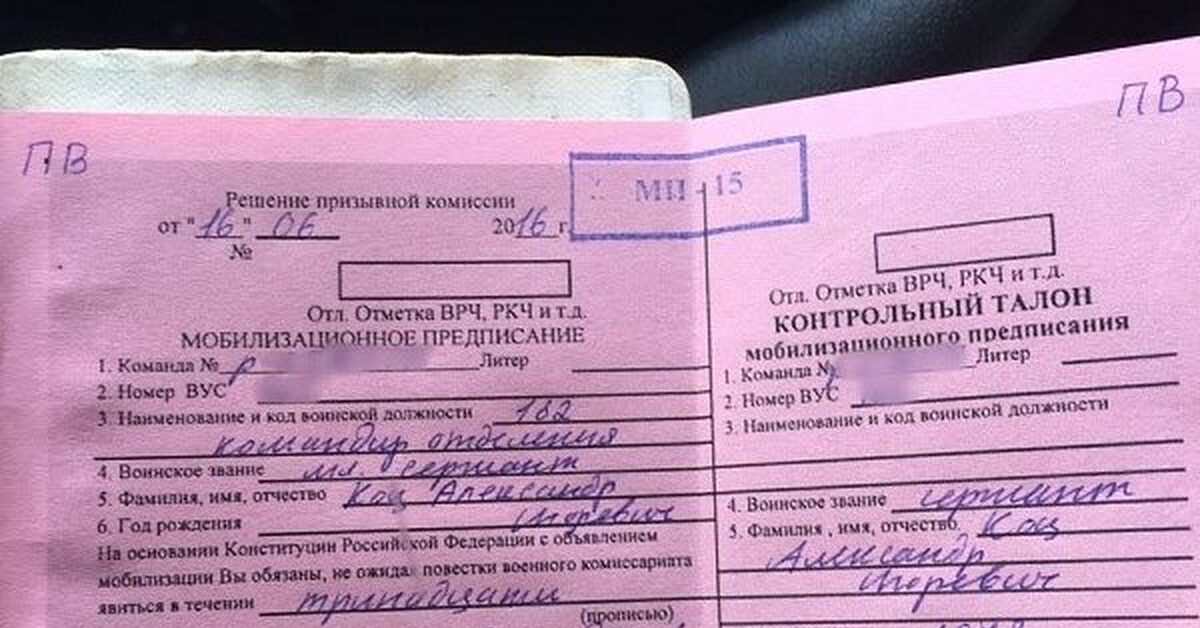 ПВ
Решение призывной комиссии
от "16" 06 2016 г.
№
МП-15
Отл. Отметка ВРЧ, РКЧ и т.д.
МОБИЛИЗАЦИОННОЕ ПРЕДПИСАНИЕ
1. Команда № Р Литер
2. Номер ВУС
3. Наименование и код воинской должности 182
командир отделения
4. Воинское звание мл. сержант
5. Фамилия, имя, отчество Кац Александр
6. Год рождения Игоревич
На основании Конституции Российской Федерации с объявлением
мобилизации Вы обязаны, не ожидая повестки военного комиссариата
явиться в течении тринадцати
(прописью)
ПВ
Отл. Отметка ВРЧ, РКЧ и т.д.
КОНТРОЛЬНЫЙ ТАЛОН
мобилизационного предписания
1. Команда № Литер
2. Номер ВУС
3. Наименование и код воинской должности
4. Воинское звание сержант
5. Фамилия, имя, отчество Кац
Александр
Игоревич